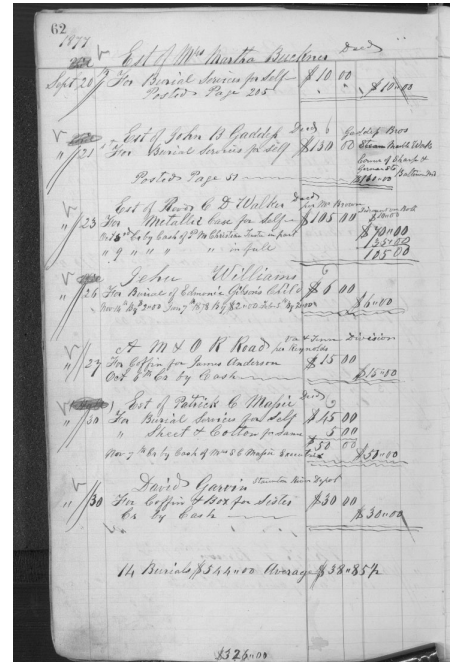 62
1877
Est of Mrs Martha Buckner Decd
Sept 20 For Burial Services for Self $10 00
Posted Page 205 $10"00
Est of John B Gaddess Decd 6 Gaddess Bros
" 21 For Burial Services for Self $130 00 Steam Marble Works
Posted Page 51 Baltimore Md
$130"00
Est of Revd C D Walker Decd per Mr Brown
" 23 For Metallic Case for Self $105 00
Oct 5th Cr by Cash of in part $70"00
" 9 " " " " in full 35"00
105 00
John Williams 6
" 26 For Burial of Edmonia Gibson's Child $6 00
Nov 14th By $2"00 Jany 7th 1878 By $2"00 Feb 5th By 2"00 $6"00
A M & O R Road per Reynolds Va & Tenn Division
" 27 For Coffin for James Anderson $15 00
Oct 8th Cr by Cash $15"00
Est of Patrick C Massie Decd 2
" 30 For Burial Services for Self $45 00
" Sheet & Cotton for Same 5 00
$50 00
Nov 7th Cr by Cash of Mrs S C Massie Executrix $50"00
David Garvin Staunton River Depot
" 30 For Coffin & Box for Sister $30 00
Cr by Cash $30"00
14 Burials $544"00 Average $38"85½
$326"00